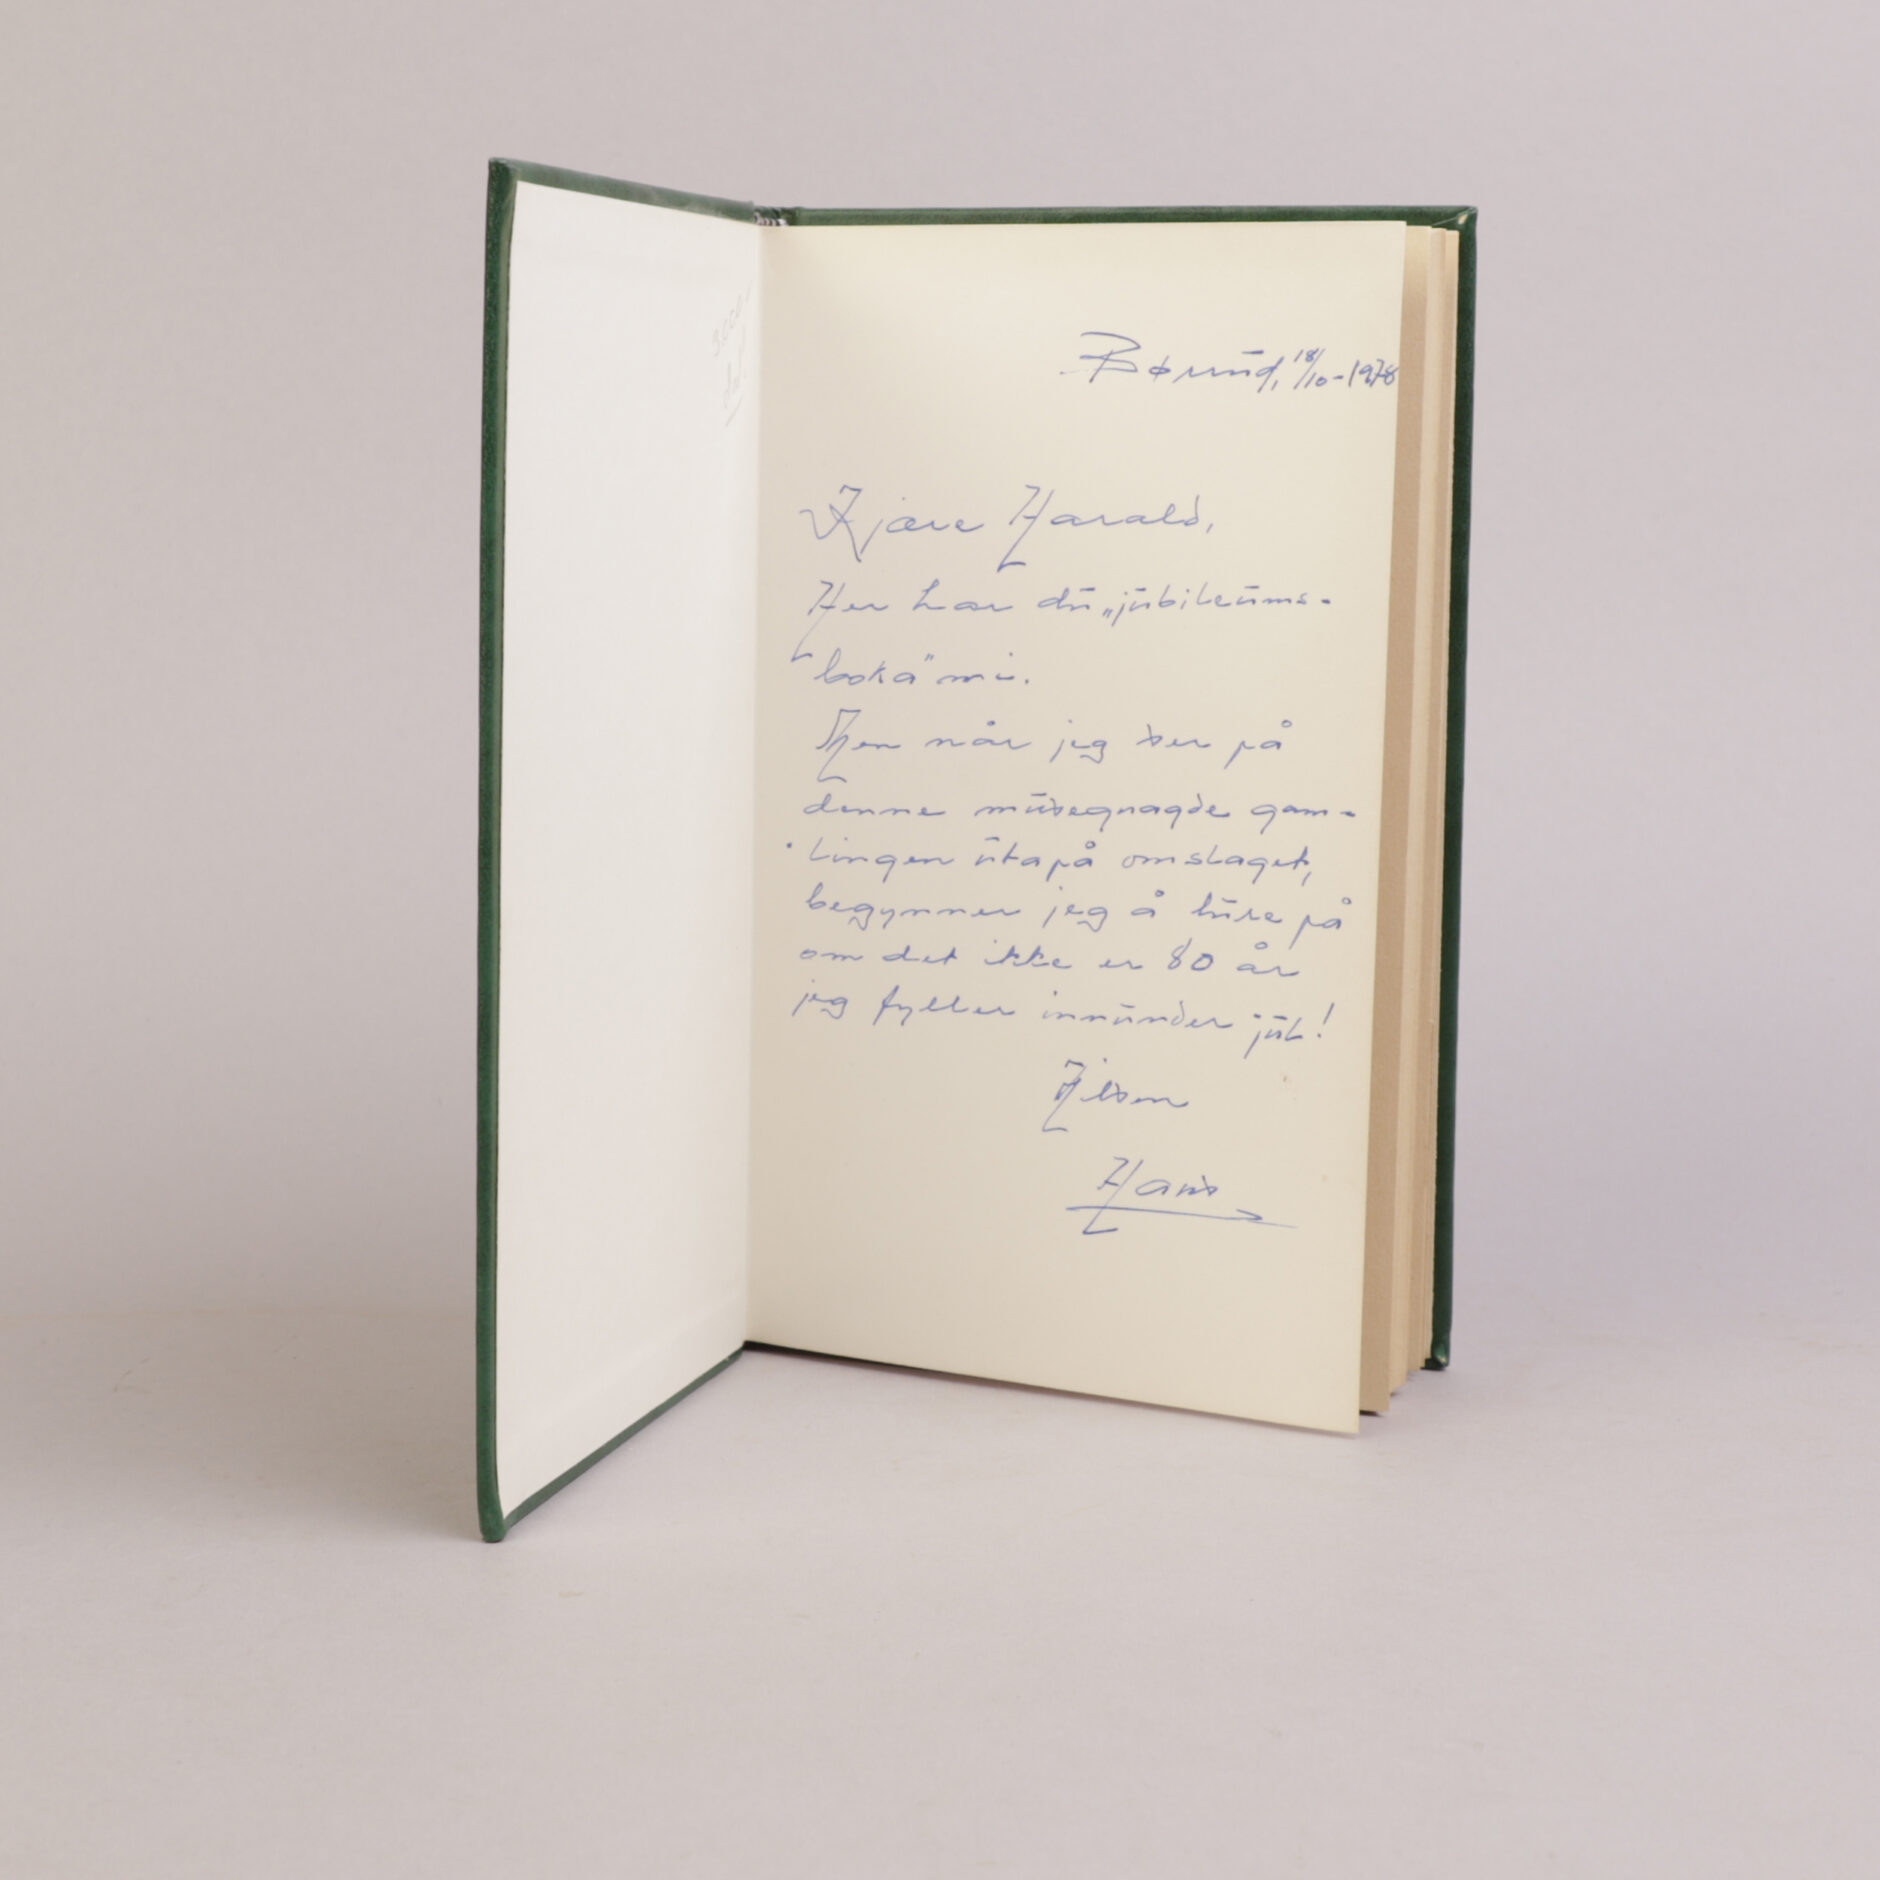 3.000,-
ded.
Børund, 18/10-1978
Kjære Harald,
Her har du „jubileums-
boka" mi.
Men når jeg ser på
denne musegnagde gam-
lingen utapå omslaget,
begynner jeg å lure på
om det ikke er 80 år
jeg fyller innunder jul!
Hilsen
Hans